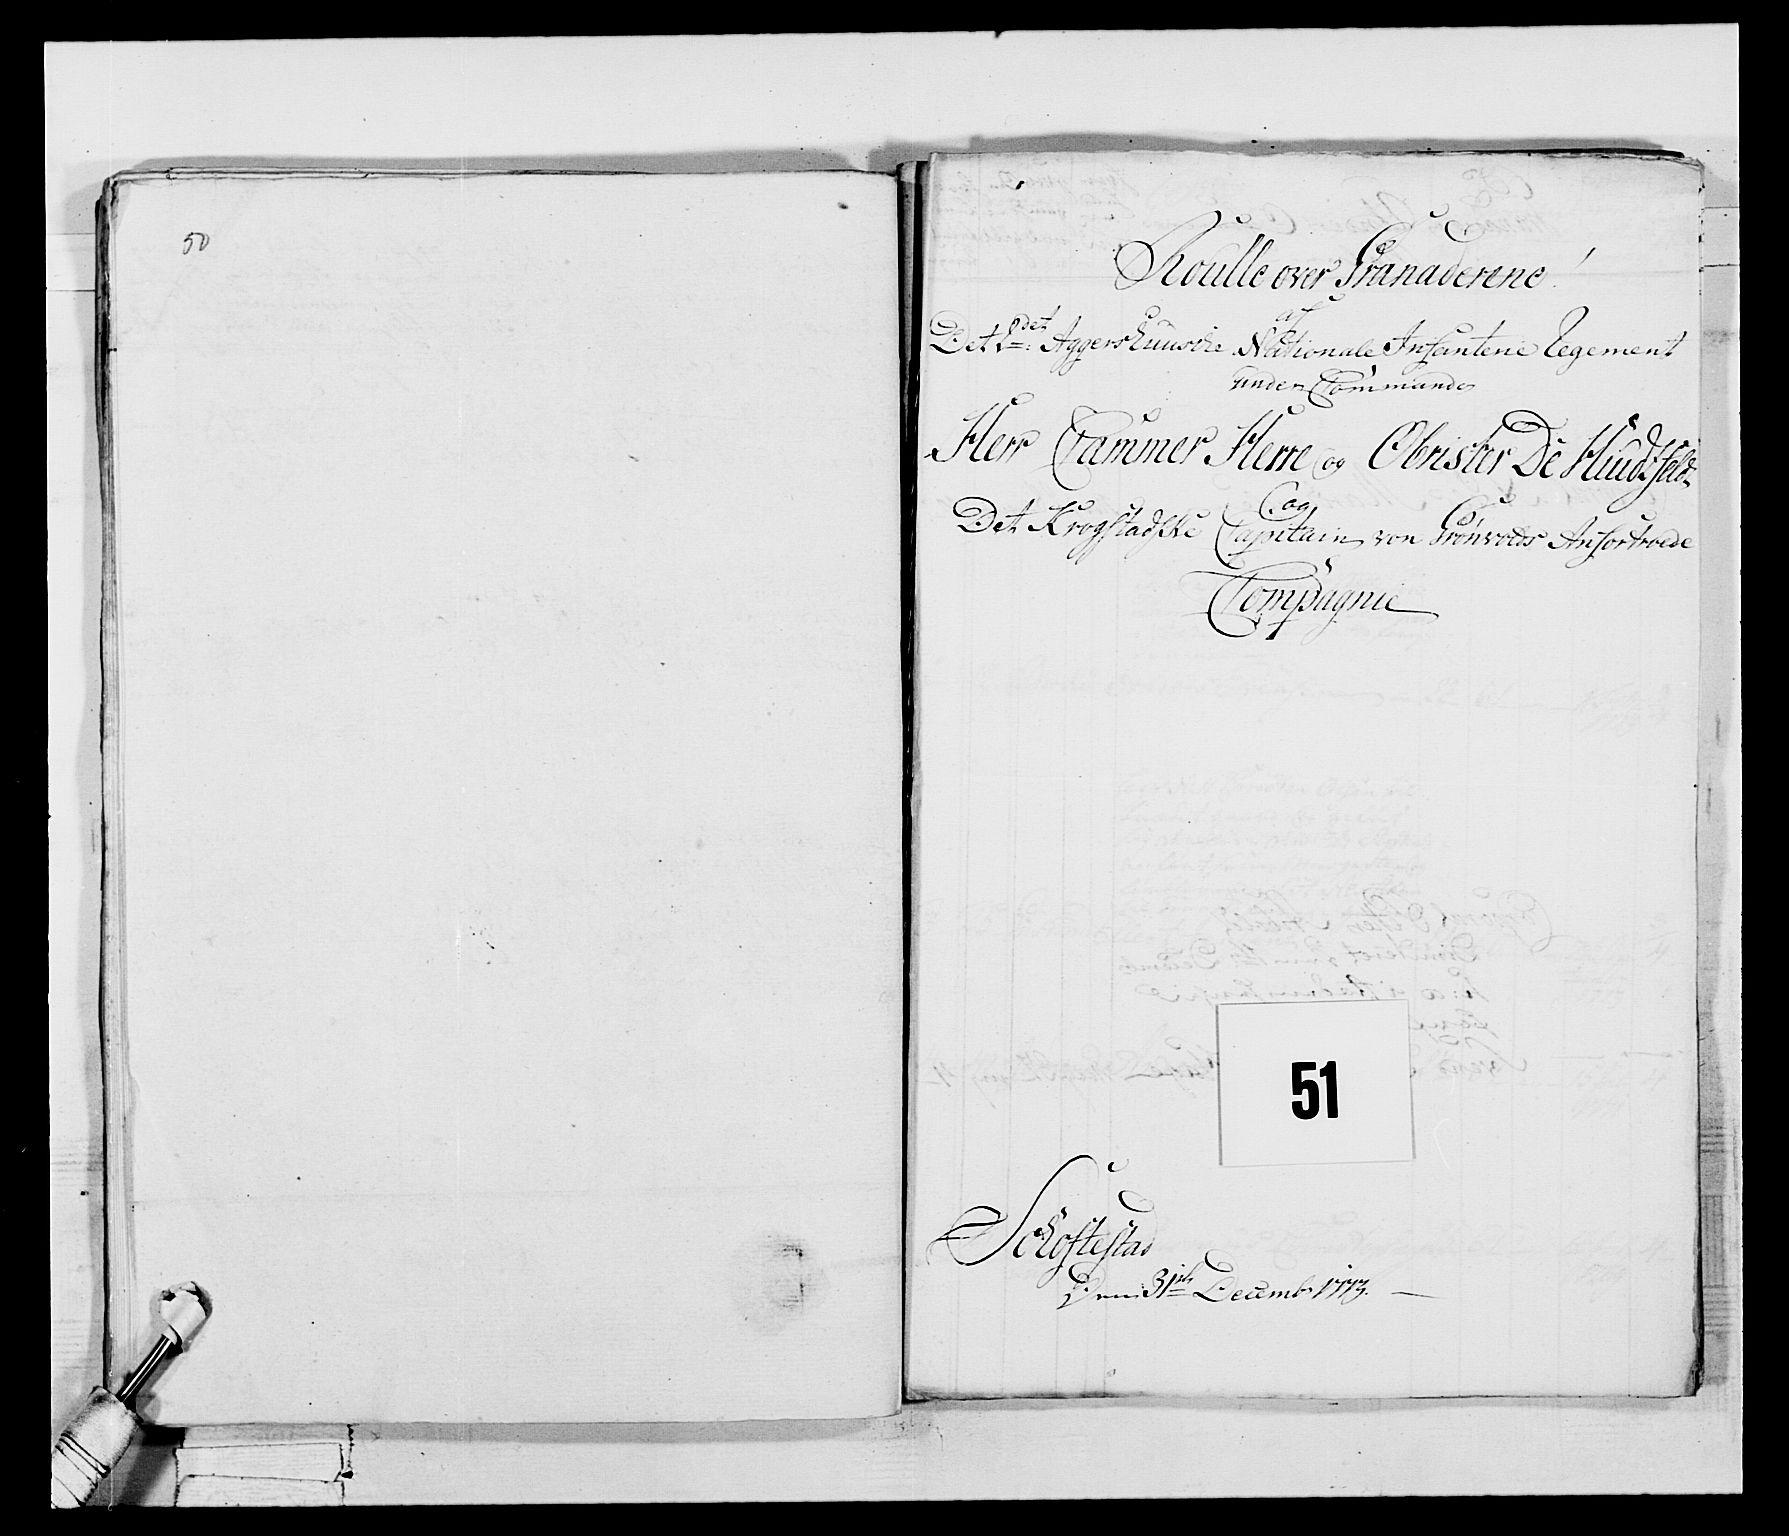 50
Roulle over Granaderene
af
Det 1det Aggershuusche Nationale Infanterie Regement
under Commando
Herr Cammer Herre og Obrister De Huudtfeldt
og
Det Krogstadske Capitain von Grönvolds Anfortroede
Compagnie
51
Schoftestad
Den 31te Decemb: 1773.